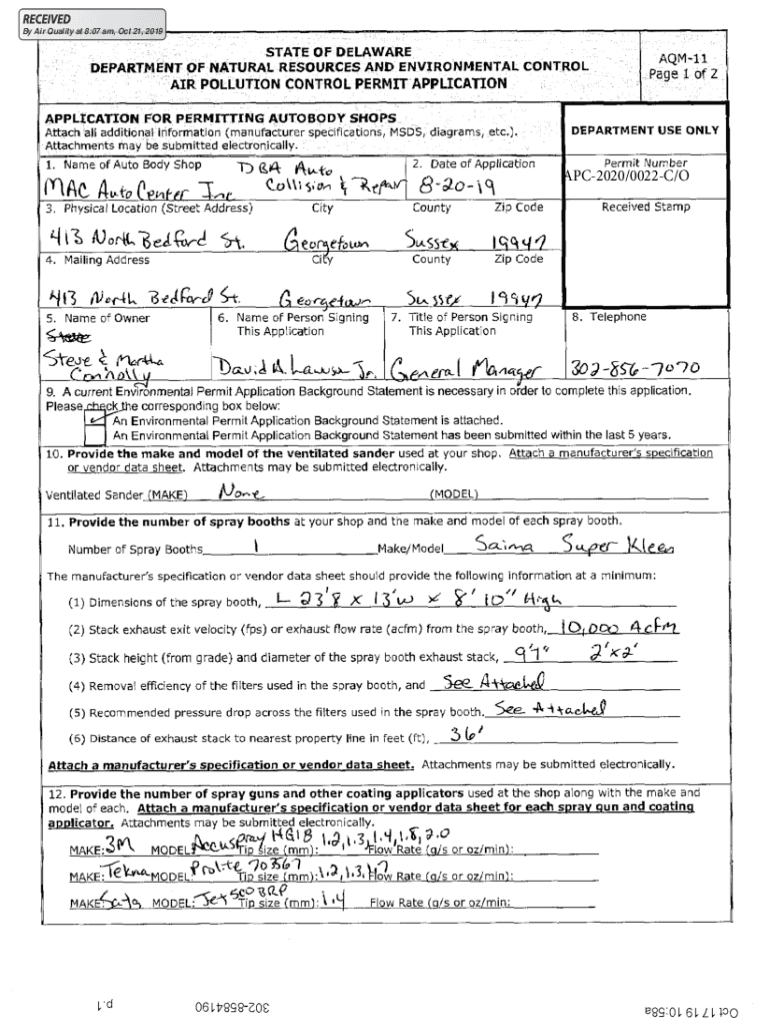 RECEIVED
By Air Quality at 8:07 am, Oct 21, 2019
STATE OF DELAWARE
DEPARTMENT OF NATURAL RESOURCES AND ENVIRONMENTAL CONTROL
AIR POLLUTION CONTROL PERMIT APPLICATION
AQM-11
Page 1 of 2
APPLICATION FOR PERMITTING AUTOBODY SHOPS
Attach all additional information (manufacturer specifications, MSDS, diagrams, etc.).
Attachments may be submitted electronically.
DEPARTMENT USE ONLY
1. Name of Auto Body Shop
DBA Auto
Collision & Repair
MAC Auto Center Inc
2. Date of Application
8-20-19
Permit Number
APC-2020/0022-C/O
3. Physical Location (Street Address) City County Zip Code
Received Stamp
413 North Bedford St. Georgetown Sussex 19947
4. Mailing Address City County Zip Code
413 North Bedford St. Georgetown Sussex 19947
5. Name of Owner
Steve & Martha
Connolly
6. Name of Person Signing
This Application
David A. Lawson Jr.
7. Title of Person Signing
This Application
General Manager
8. Telephone
302-856-7070
9. A current Environmental Permit Application Background Statement is necessary in order to complete this application.
Please check the corresponding box below:
An Environmental Permit Application Background Statement is attached.
An Environmental Permit Application Background Statement has been submitted within the last 5 years.
10. Provide the make and model of the ventilated sander used at your shop. Attach a manufacturer's specification
or vendor data sheet. Attachments may be submitted electronically.
Ventilated Sander (MAKE) None (MODEL)
11. Provide the number of spray booths at your shop and the make and model of each spray booth.
Number of Spray Booths 1 Make/Model Saima Super Kleen
The manufacturer's specification or vendor data sheet should provide the following information at a minimum:
(1) Dimensions of the spray booth, L 23'8 x 13'w x 8' 10" High
(2) Stack exhaust exit velocity (fps) or exhaust flow rate (acfm) from the spray booth, 10,000 Acfm
(3) Stack height (from grade) and diameter of the spray booth exhaust stack, 9'7" 2'x2'
(4) Removal efficiency of the filters used in the spray booth, and See Attached
(5) Recommended pressure drop across the filters used in the spray booth. See Attached
(6) Distance of exhaust stack to nearest property line in feet (ft), 36'
Attach a manufacturer's specification or vendor data sheet. Attachments may be submitted electronically.
12. Provide the number of spray guns and other coating applicators used at the shop along with the make and
model of each. Attach a manufacturer's specification or vendor data sheet for each spray gun and coating
applicator. Attachments may be submitted electronically.
MAKE: 3M MODEL: Accuspray HG18 Tip size (mm): 1.2, 1.3, 1.4, 1.8, 2.0 Flow Rate (g/s or oz/min):
MAKE: Tekna MODEL: Prolite 703567 Tip size (mm): 1.2, 1.3, 1.7 Flow Rate (g/s or oz/min):
MAKE: Sata MODEL: Jet 500 BRP Tip size (mm): 1.4 Flow Rate (g/s or oz/min:
Oct 17 19 10:58a
302-8584190
p.1